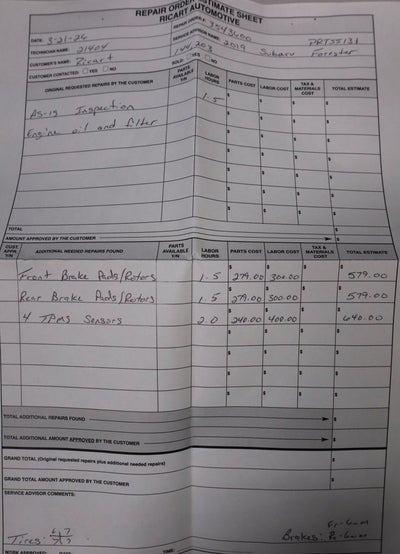 REPAIR ORDER/ESTIMATE SHEET
RICART AUTOMOTIVE
DATE: 3-21-26 REPAIR ORDER #: 3543600
TECHNICIAN NAME: 21404 SERVICE ADVISOR NAME: 2019 Subaru
CUSTOMER'S NAME: Ricart 144,203 Forester
CUSTOMER CONTACTED: YES NO SOLD: YES NO
ORIGINAL REQUESTED REPAIRS BY THE CUSTOMER PARTS AVAILABLE Y/N LABOR HOURS PARTS COST LABOR COST TAX & MATERIALS COST TOTAL ESTIMATE
AS-IS Inspection 1.5
Engine oil and filter
TOTAL $
AMOUNT APPROVED BY THE CUSTOMER $
CUST. APPR. Y/N ADDITIONAL NEEDED REPAIRS FOUND PARTS AVAILABLE Y/N LABOR HOURS PARTS COST LABOR COST TAX & MATERIALS COST TOTAL ESTIMATE
Front Brake Pads/Rotors 1.5 $279.00 $300.00 $ $579.00
Rear Brake Pads/Rotors 1.5 $279.00 $300.00 $ $579.00
4 TPMS Sensors 2.0 $240.00 $400.00 $ $640.00
TOTAL ADDITIONAL REPAIRS FOUND $
TOTAL ADDITIONAL AMOUNT APPROVED BY THE CUSTOMER $
GRAND TOTAL (Original requested repairs plus additional needed repairs) $
GRAND TOTAL AMOUNT APPROVED BY THE CUSTOMER $
SERVICE ADVISOR COMMENTS:
Fr-6mm
Tires: Brakes: Rr-6mm
WORK APPROVED: DATE: TIME: